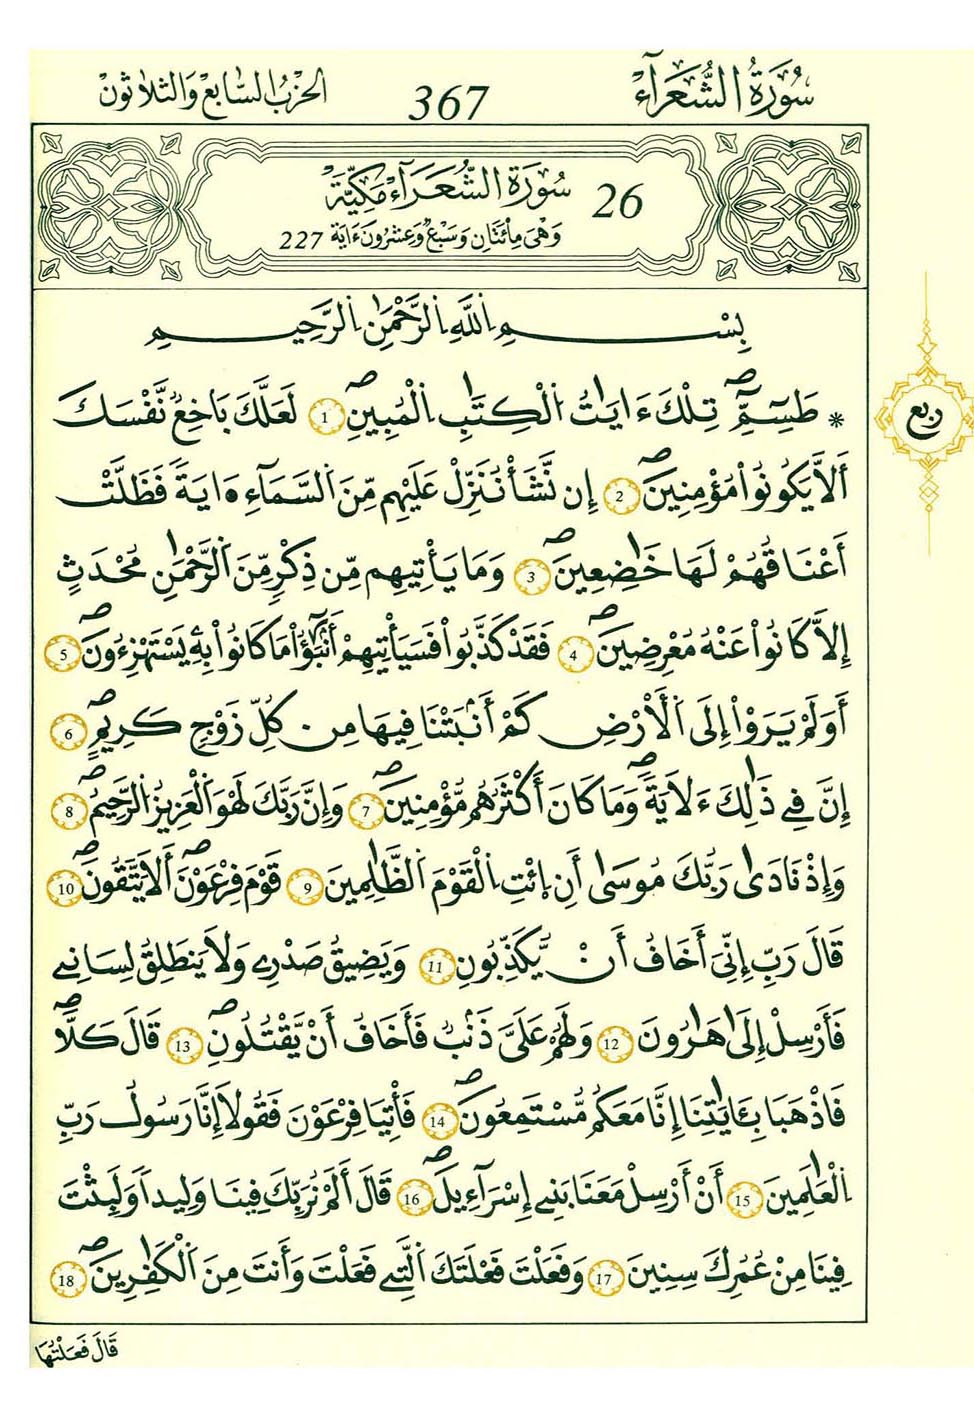 سُورَةُ الشُّعَرَآءِ
367
الحِزْبُ السَّابِعُ وَالثَّلَاثُونَ
26 سُورَةُ الشُّعَرَآءِ مَكِّيَّةٌ
وَهْىَ مِاْئَتَانِ وَسَبْعٌ وَعِشْرُونَ ءَايَةً 227
بِسْمِ اِ۬للَّهِ اِ۬لرَّحْمَٰنِ اِ۬لرَّحِيمِ
* طَسِٓمِّٓۖ تِلْكَ ءَايَٰتُ اُ۬لْكِتَٰبِ اِ۬لْمُبِينِۖ 1 لَعَلَّكَ بَٰخِعٞ نَّفْسَكَ
أَلَّا يَكُونُواْ مُؤْمِنِينَۖ 2 إِن نَّشَأْ نُنَزِّلْ عَلَيْهِم مِّنَ اَ۬لسَّمَآءِ ءَايَةٗ فَظَلَّتْ
أَعْنَٰقُهُمْ لَهَا خَٰضِعِينَۖ 3 وَمَا يَأْتِيهِم مِّن ذِكْرٖ مِّنَ اَ۬لرَّحْمَٰنِ مُحْدَثٍ
إِلَّا كَانُواْ عَنْهُ مُعْرِضِينَۖ 4 فَقَدْ كَذَّبُواْ فَسَيَأْتِيهِمْ أَنۢبَٰٓؤُاْ مَا كَانُواْ بِهِۦ يَسْتَهْزِءُونَۖ 5
أَوَلَمْ يَرَوِاْ اِلَى اَ۬لْأَرْضِ كَمْ أَنۢبَتْنَا فِيهَا مِن كُلِّ زَوْجٖ كَرِيمٍۖ 6
إِنَّ فِے ذَٰلِكَ ءَلَايَةٗۖ وَمَا كَانَ أَكْثَرُهُم مُّؤْمِنِينَۖ 7 وَإِنَّ رَبَّكَ لَهُوَ اَ۬لْعَزِيزُ اُ۬لرَّحِيمُۖ 8
وَإِذْ نَادَىٰ رَبُّكَ مُوسَىٰ أَنِ اِ۪ئْتِ اِ۬لْقَوْمَ اَ۬لظَّٰلِمِينَ 9 قَوْمَ فِرْعَوْنَۖ أَلَا يَتَّقُونَۖ 10
قَالَ رَبِّ إِنِّىَ أَخَافُ أَنْ يُّكَذِّبُونِ 11 وَيَضِيقُ صَدْرِے وَلَا يَنطَلِقُ لِسَانِے
فَأَرْسِلْ إِلَىٰ هَٰرُونَ 12 وَلَهُمْ عَلَىَّ ذَنۢبٞ فَأَخَافُ أَنْ يَّقْتُلُونِۖ 13 قَالَ كَلَّاۖ
فَاذْهَبَا بِـَٔايَٰتِنَا إِنَّا مَعَكُم مُّسْتَمِعُونَۖ 14 فَأْتِيَا فِرْعَوْنَ فَقُولَا إِنَّا رَسُولُ رَبِّ
اِ۬لْعَٰلَمِينَ 15 أَنْ أَرْسِلْ مَعَنَا بَنِے إِسْرَآءِيلَۖ 16 قَالَ أَلَمْ نُرَبِّكَ فِينَا وَلِيداٗ وَلَبِثْتَ
فِينَا مِنْ عُمُرِكَ سِنِينَ 17 وَفَعَلْتَ فَعْلَتَكَ اَ۬لَّتِے فَعَلْتَ وَأَنتَ مِنَ اَ۬لْكَٰفِرِينَۖ 18
قَالَ فَعَلْتُهَا
ربع